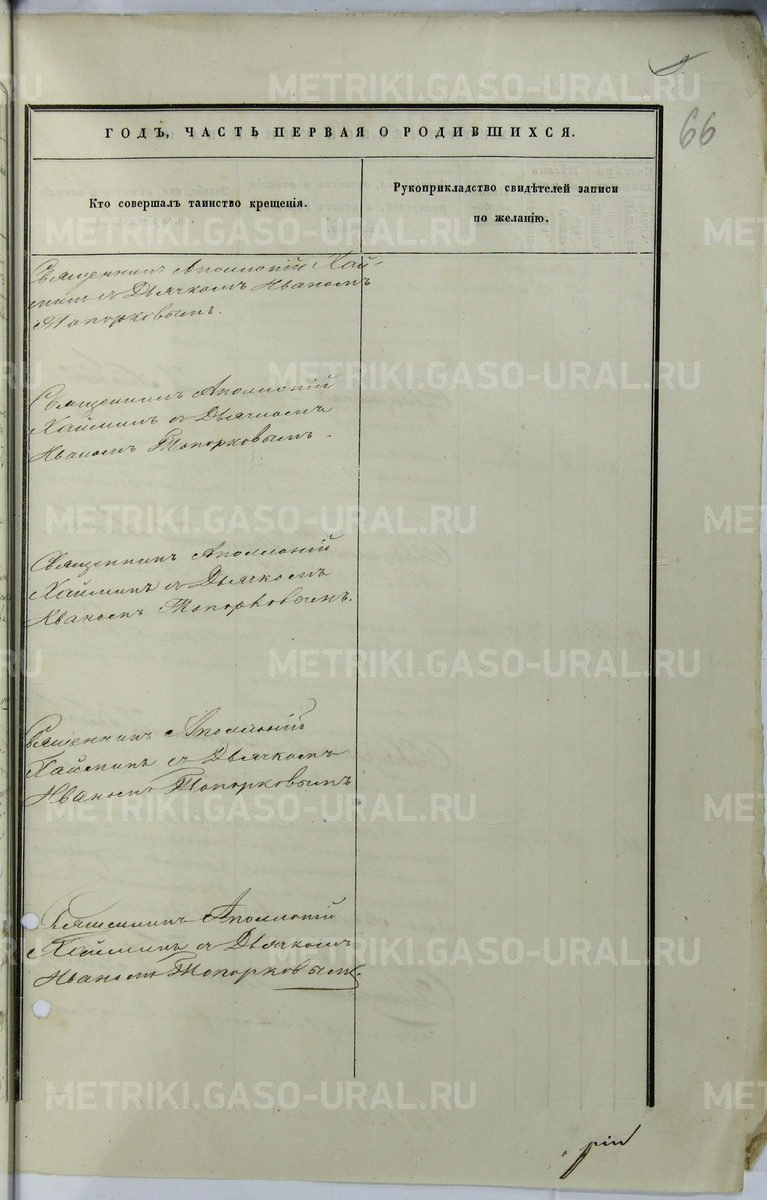 66
ГОДЪ, ЧАСТЬ ПЕРВАЯ О РОДИВШИХСЯ.
Кто совершалъ таинство крещенія.
Рукоприкладство свидѣтелей записи
по желанію.
Священникъ Аполлоній Хай-
минъ съ Дьячкомъ Иваномъ
Топорковымъ.
Священникъ Аполлоній
Хайминъ съ Дьячкомъ
Иваномъ Топорковымъ.
Священникъ Аполлоній
Хайминъ съ Дьячкомъ
Иваномъ Топорковымъ.
Священникъ Аполлоній
Хайминъ съ Дьячкомъ
Иваномъ Топорковымъ
Священникъ Аполлоній
Хайминъ съ Дьячкомъ
Иваномъ Топорковымъ.
METRIKI.GASO-URAL.RU